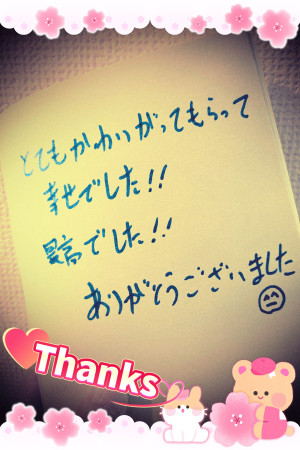 とてもかわいがってもらって
幸せでした!!
最高でした!!
ありがとうございました
Thanks